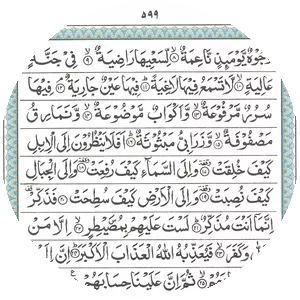 ٥٩٩
وُجُوهٌ يَوْمَئِذٍ نَاعِمَةٌ ۝٨ لِسَعْيِهَا رَاضِيَةٌ ۝٩ فِي جَنَّةٍ
عَالِيَةٍ ۝١٠ لَا تَسْمَعُ فِيهَا لَاغِيَةً ۝١١ فِيهَا عَيْنٌ جَارِيَةٌ ۝١٢ فِيهَا
سُرُرٌ مَرْفُوعَةٌ ۝١٣ وَأَكْوَابٌ مَوْضُوعَةٌ ۝١٤ وَنَمَارِقُ
مَصْفُوفَةٌ ۝١٥ وَزَرَابِيُّ مَبْثُوثَةٌ ۝١٦ أَفَلَا يَنْظُرُونَ إِلَى الْإِبِلِ
كَيْفَ خُلِقَتْ ۝١٧ وَإِلَى السَّمَاءِ كَيْفَ رُفِعَتْ ۝١٨ وَإِلَى الْجِبَالِ
كَيْفَ نُصِبَتْ ۝١٩ وَإِلَى الْأَرْضِ كَيْفَ سُطِحَتْ ۝٢٠ فَذَكِّرْ
إِنَّمَا أَنْتَ مُذَكِّرٌ ۝٢١ لَسْتَ عَلَيْهِمْ بِمُصَيْطِرٍ ۝٢٢ إِلَّا مَنْ
وَكَفَرَ ۝٢٣ فَيُعَذِّبُهُ اللَّهُ الْعَذَابَ الْأَكْبَرَ ۝٢٤ إِنَّ إِلَ
۝٢٥ ثُمَّ إِنَّ عَلَيْنَا حِسَابَهُمْ